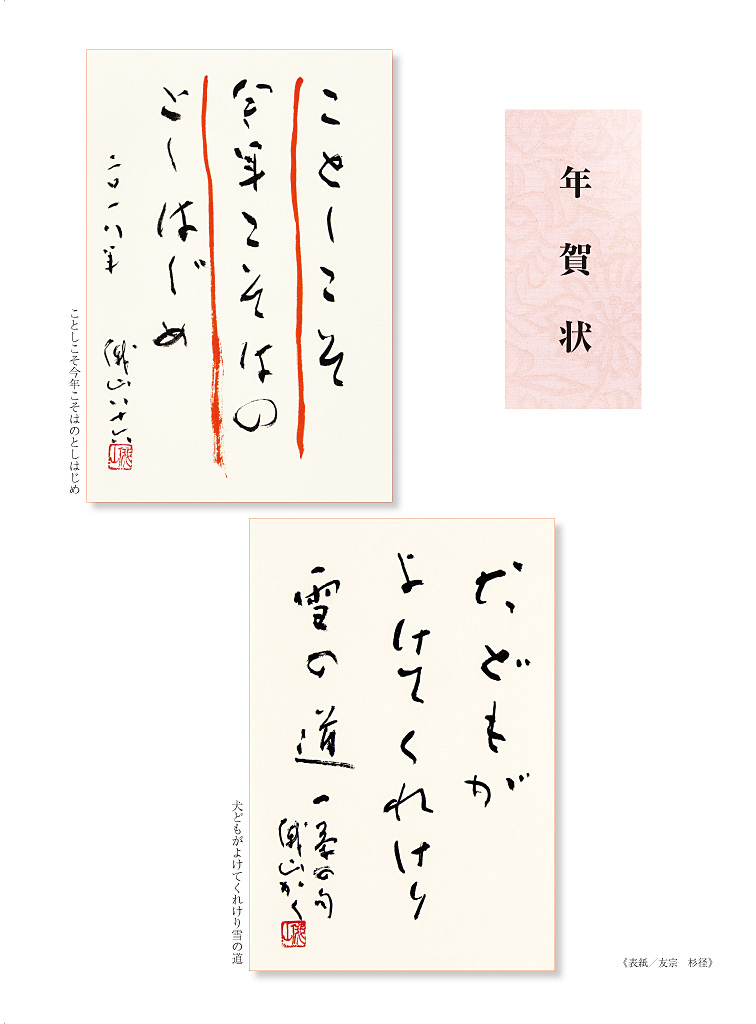 年賀状
ことしこそ
今年こそはの
としはじめ
二〇一八年
山八十六
ことしこそ今年こそはのとしはじめ
犬どもが
よけてくれけり
雪の道
一茶の句
山かく
犬どもがよけてくれけり雪の道
《表紙／友宗　杉径》